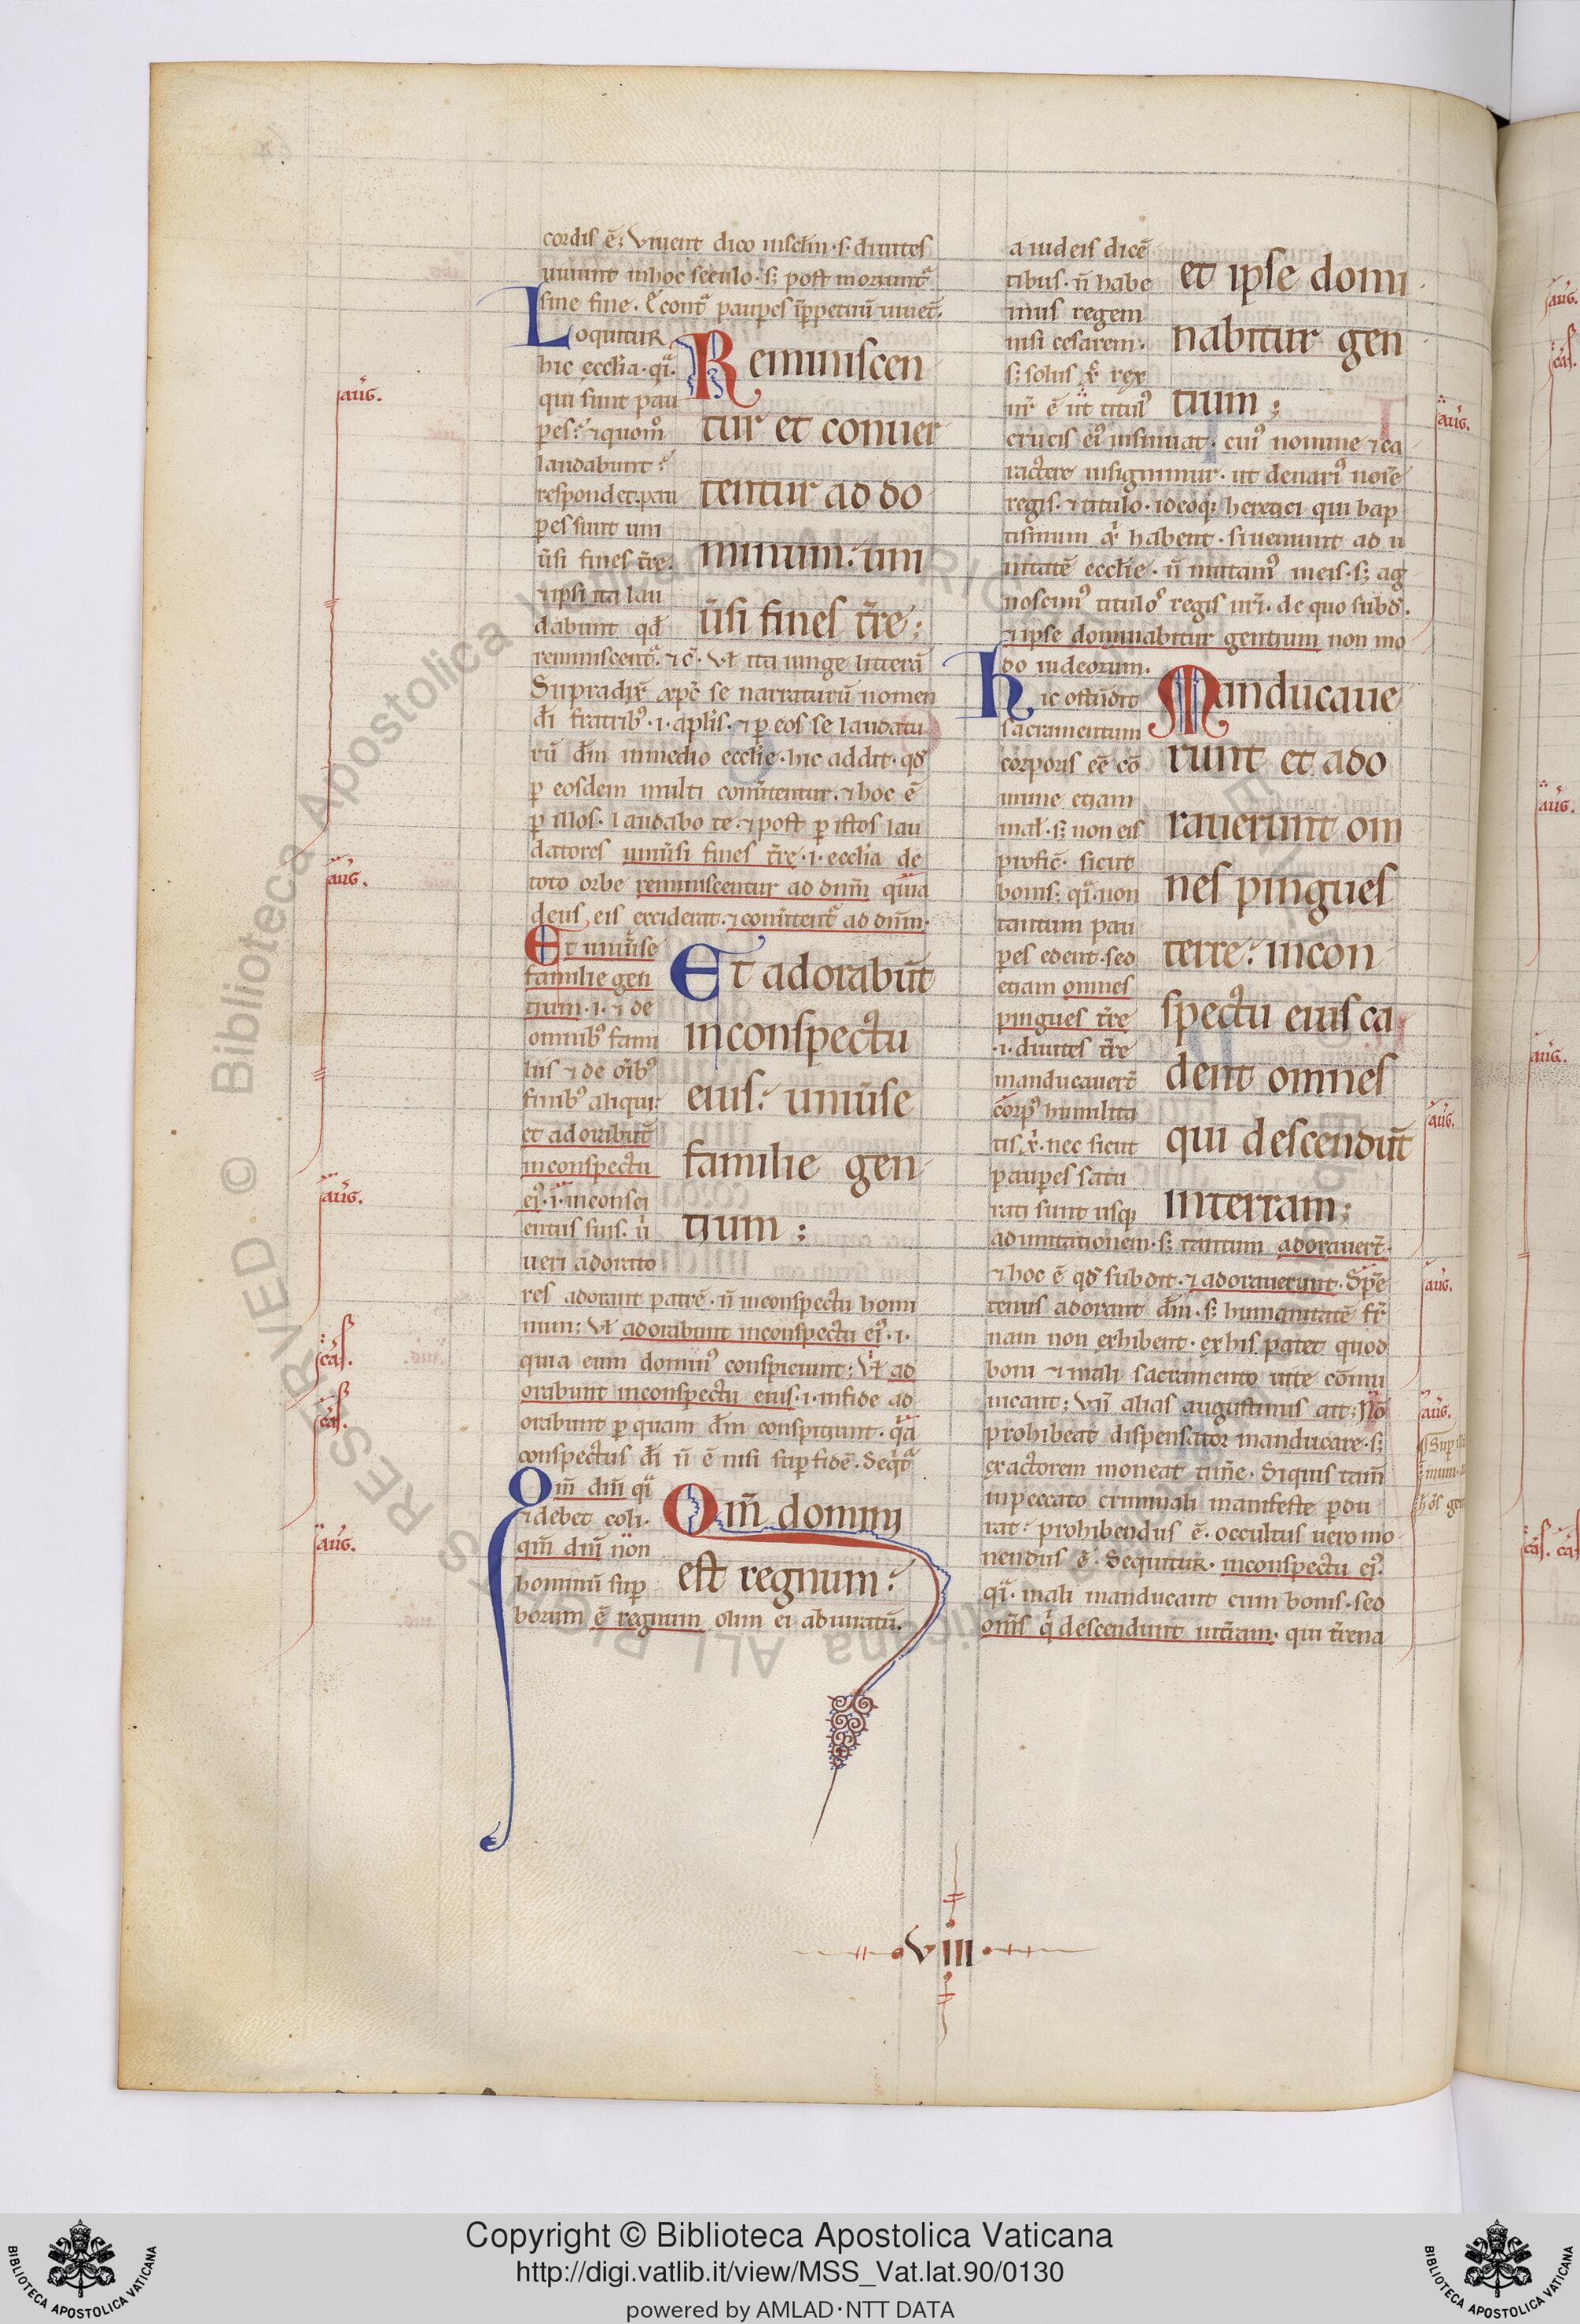 cordis ē; Viuent dico inseclm̄·s·diuites
uiuunt inhoc seculo·s; post moriunt᷑
sine fine. Econt᷑ paupes īppetuū uiuet̄.
Loquitur
hic ecclīa·q᷑.
qui sunt pau
pes? ⁊quom̊
laudabunt?
respondet·pau
pes sunt uni
ūsi fines t̄re.
⁊ipsi ita lau
dabunt qd̄
Reminiscen
tur et conuer
tentur ad do
minum: uni
ūsi fines t̄re;
reminiscent᷑·⁊c̄. Vl̄ ita iunge litterā
Supradix̄ xp̄c se narraturū nomen
dī fratrib᷒·i·ap̄lis·⁊ p eos se laudatu
rū dm̄ inmedio ecclīe·hic addit·qd̄
p eosdem multi conūtentur.⁊hoc ē
p illos·laudabo te·⁊post p istos lau
datores uniūsi fines t̄re·i·ecclīa de
toto orbe reminiscentur ad dnm̄ quia
deus eis exciderat·⁊conūtent᷑ ad dnm̄.
Et uniūse
familie gen
tium·i·⁊ de
omnib᷒ fami
liis ⁊ de oīb᷒
finib᷒ aliqui
et adorabūt
inconspectu
ei᷒·i·inconsci
entiis suis. ū
ueri adorato
Et adorabūt
inconspectu
eius: uniūse
familie gen
tium;
res adorant patrē·n̄ inconspectu homi
num; Vl̄ adorabunt inconspectu ei᷒·i·
quia eum domin᷒ conspiciunt; Vl̄ ad
orabunt inconspectu eius·i·infide ad
orabunt p quam dm̄ conspiciunt·q̄a
conspectus dī n̄ ē nisi sup fidē·Seq̄t᷑
Qm̄ dnī q᷑
⁊debet coli.
qm̄ dnī non
hominū sup
Qm̄ domini
est regnum:
borum ē regnum olim ei abiuratū.
a iudeis dicē
tibus·n̄ habe
mus regem
nisi cesarem.
s; solus x̄ rex
nr̄ ē ut titul᷒
et ipse domi
nabitur gen
tium;
crucis ei᷒ insinuat·cui᷒ nomine ⁊ca
ractere insignimur·ut denari᷒ noīe
regis·⁊titulo·ideoq; heretici qui bap
tismum x̄ habent·si ueniunt ad u
nitatē ecclīe·n̄ mutam᷒ meis·s; ag
noscim᷒ titulos regis nr̄i·de quo subd̄.
⁊ipse dominabitur gentium non mo
do iudeorum.
hic ostūdit
sacramentum
corporis eē cō
mune etiam
mal̄·s; non eis
profic̄·sicut
bonis·q᷑·non
tantum pau
pes edent·sed
etiam omnes
pingues t̄re
·i·diuites t̄re
manducauert̄
corp᷒ humilita
tis x̄·nec sicut
paupes satu
rati sunt usq;
Manducaue
runt et ado
rauerunt om
nes pingues
terre: incon
spectu eius ca
dent omnes
qui descendūt
interram;
ad imitationem·s; tantum adorauert̄.
⁊hoc ē qd̄ subdit·⁊adorauerunt·Spē
tenus adorant dm̄·s; humanitatē fr̄
nam non exhibent·ex his patet quod
boni ⁊ mali sacramento uite cōmu
nicant; Vn̄ alias augustinus ait; Nō
prohibeat dispensator manducare·s;
exactorem moneat timē·Siquis tam̄
inpeccato criminali manifeste pdu
rat: prohibendus ē·occultus uero mo
nendus ē·Sequitur·inconspectu ei᷒.
q᷑·mali manducant cum bonis·sed
omīs q̄ descendunt int̄ram·qui t̄rena
aūg.
aūg.
aūg.
cās.
cās.
aūg.
aūg.
aūg.
aūg.
aūg.
VIII
Copyright © Biblioteca Apostolica Vaticana
http://digi.vatlib.it/view/MSS_Vat.lat.90/0130
powered by AMLAD·NTT DATA
BIBLIOTECA APOSTOLICA VATICANA
BIBLIOTECA APOSTOLICA VATICANA